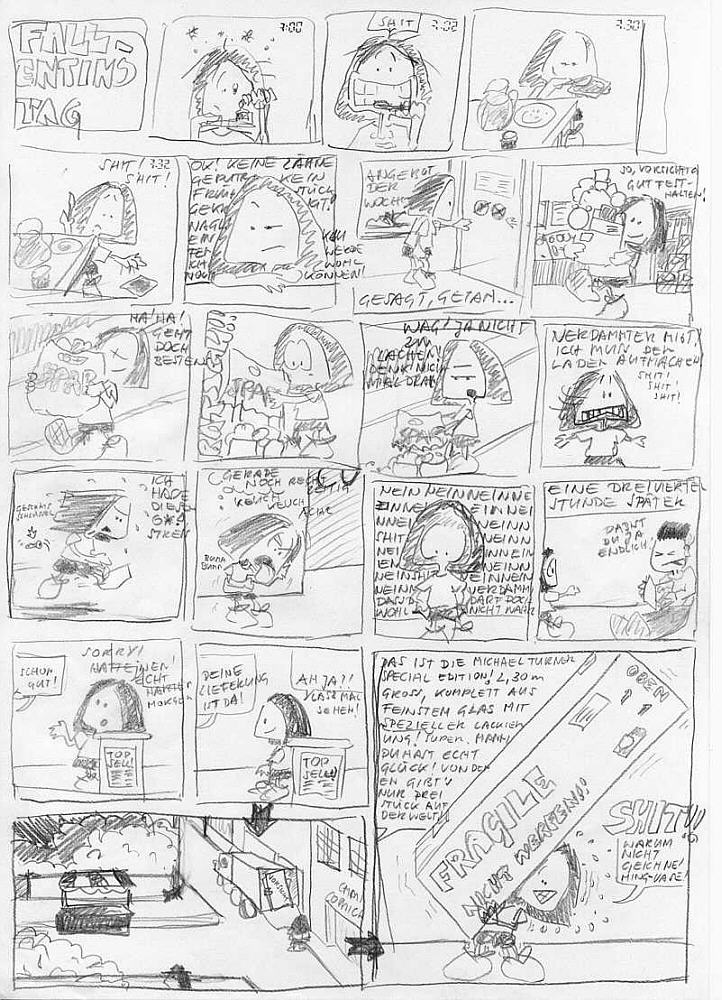 FALL-
ENTINS
TAG
7:00
SHIT
7:02
7:30
SHIT! 7:32
SHIT!
OK! KEINE ZÄHNE
GEPUTZT, KEIN
FRÜHSTÜCK
WERDE
WOHL
KÖNNEN!
ANGEBOT
DER
WOCHE
GESAGT, GETAN...
SO, VORSICHTIG
GUT FEST-
HALTEN!
HA! HA!
GEHT
DOCH
BESTENS
SPAR
RATSCH!!!
SPAR
WAG' JA NICHT
ZU
LACHEN!
DENK' NICH
MAL DRAN
SPAR
VERDAMMTER MIST,
ICH MUSS DEN
LADEN AUFMACHEN
SHIT!
SHIT!
SHIT!
ICH
HASSE
DIESE
GERADE
NOCH RECHT-
ZEITIG
KEUCH
KEUCH
BUMM
BUMM
NEIN NEIN NEINNE
SHIT
VERDAMMT
DAS
DARF DOCH
WOHL
NICHT WAHR
EINE DREIVIERTEL
STUNDE SPÄTER
DA BIST
DU JA
ENDLICH!
SCHON
GUT!
SORRY!
HATTE 'NEN
ECHT
HARTEN
MORGEN
TOP
SELL!
DEINE
LIEFERUNG
IST DA!
AH JA?!
LASS MAL
SEHEN!
TOP
SELL!
DAS IST DIE MICHAEL TURNER
SPECIAL EDITION! 2,30m
GROSS, KOMPLETT AUS
FEINSTEM GLAS MIT
SPEZIELLER LACKIER-
UNG! SUPER, MANN!
DU HAST ECHT
GLÜCK! VON DEN-
EN GIBT'S
NUR DREI
STÜCK AUF
DER WELT!!
OBEN
FRAGILE
NICHT WERFEN!!!
SHIT!!
WARUM
NICHT